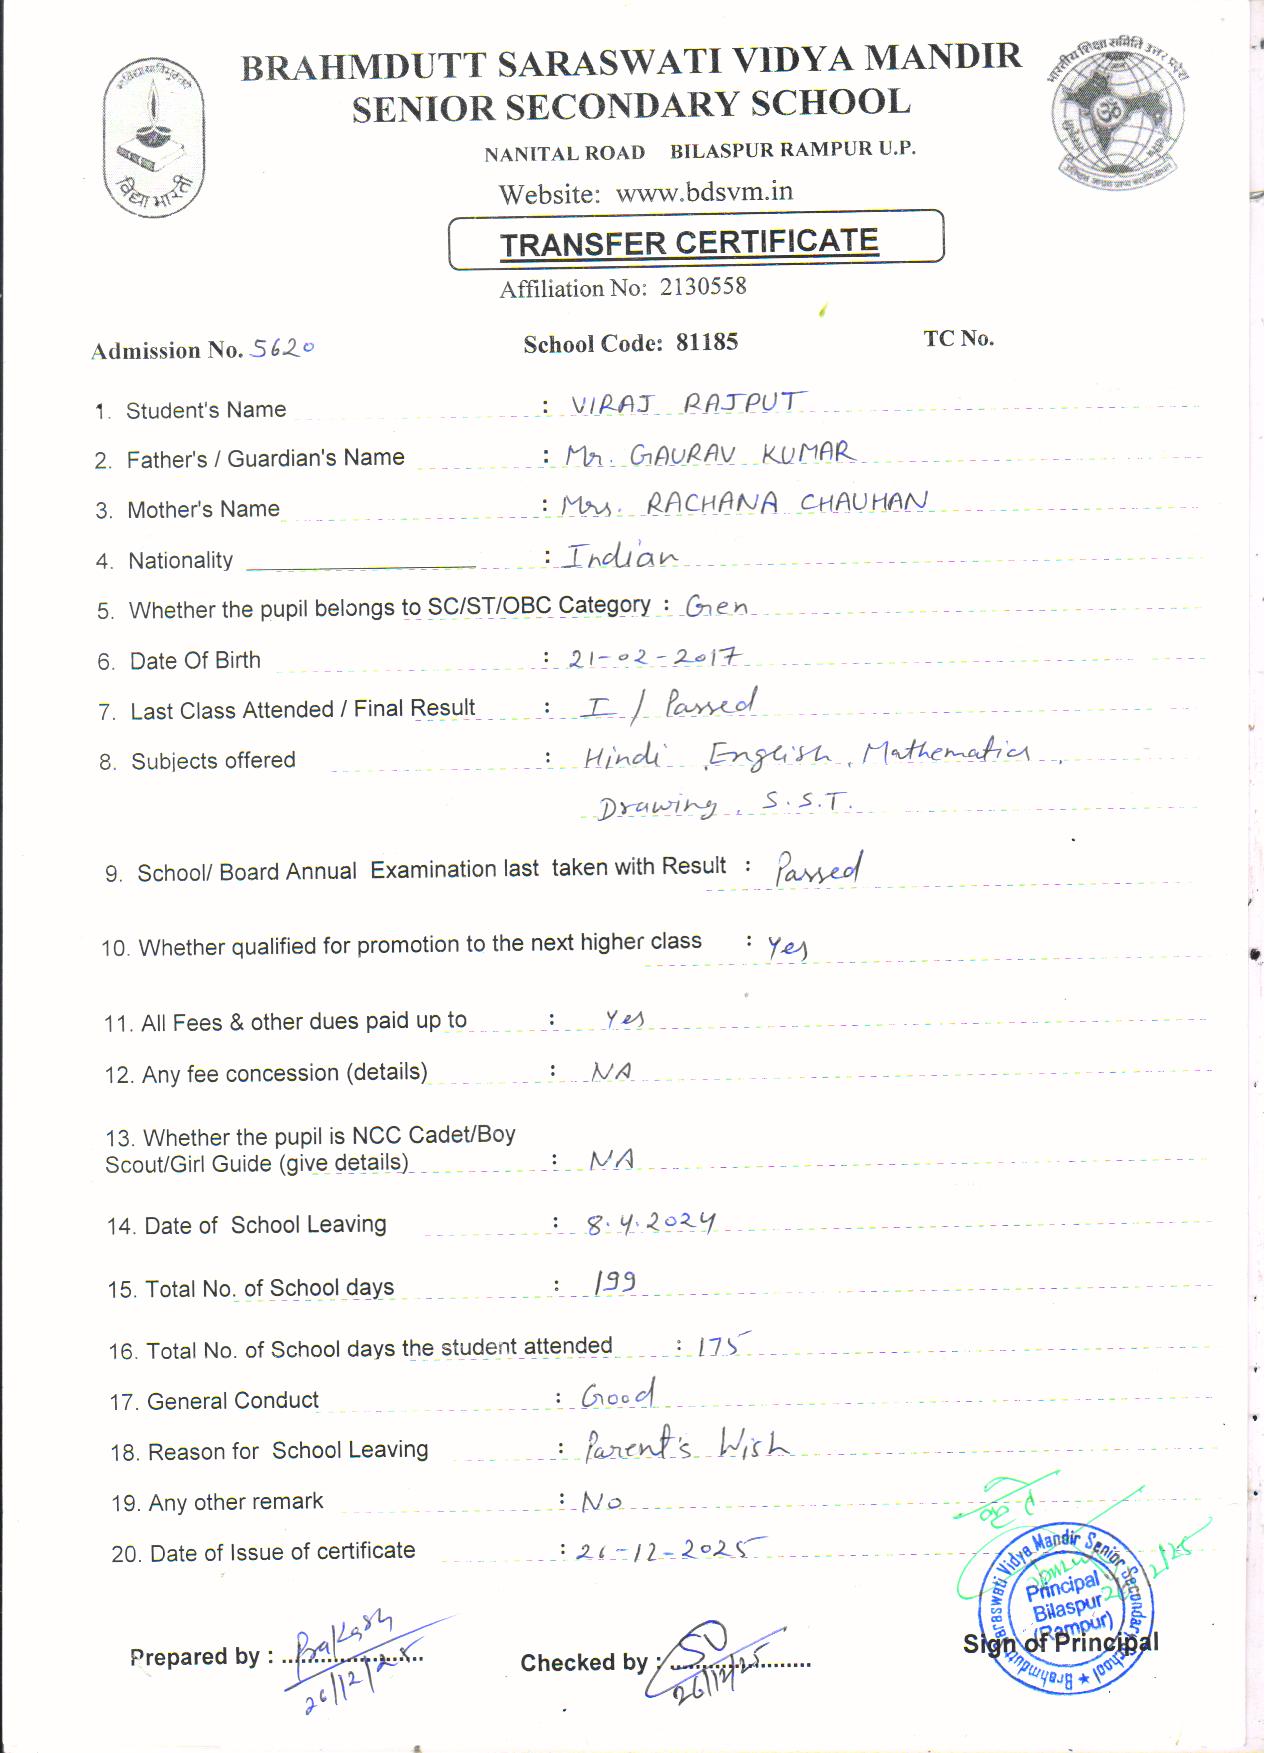 BRAHMDUTT SARASWATI VIDYA MANDIR
SENIOR SECONDARY SCHOOL
NANITAL ROAD BILASPUR RAMPUR U.P.
Website: www.bdsvm.in
विद्या भारती
भारतीय शिक्षा समिति उत्तर प्रदेश
TRANSFER CERTIFICATE
Affiliation No: 2130558
Admission No. 5620 School Code: 81185 TC No.
1. Student's Name : VIRAJ RAJPUT
2. Father's / Guardian's Name : Mr. GAURAV KUMAR
3. Mother's Name : Mrs. RACHANA CHAUHAN
4. Nationality : Indian
5. Whether the pupil belongs to SC/ST/OBC Category : Gen
6. Date Of Birth : 21-02-2017
7. Last Class Attended / Final Result : I / Passed
8. Subjects offered : Hindi, English, Mathematics,
Drawing, S.S.T.
9. School/ Board Annual Examination last taken with Result : Passed
10. Whether qualified for promotion to the next higher class : Yes
11. All Fees & other dues paid up to : Yes
12. Any fee concession (details) : NA
13. Whether the pupil is NCC Cadet/Boy
Scout/Girl Guide (give details) : NA
14. Date of School Leaving : 8.4.2024
15. Total No. of School days : 199
16. Total No. of School days the student attended : 175
17. General Conduct : Good
18. Reason for School Leaving : Parent's Wish
19. Any other remark : No
20. Date of Issue of certificate : 26-12-2025
Prepared by : Prakash
26/12/25
Checked by :
26/12/25
Sign of Principal
Brahmdutt Saraswati Vidya Mandir Senior Secondary School
Principal
Bilaspur
(Rampur)